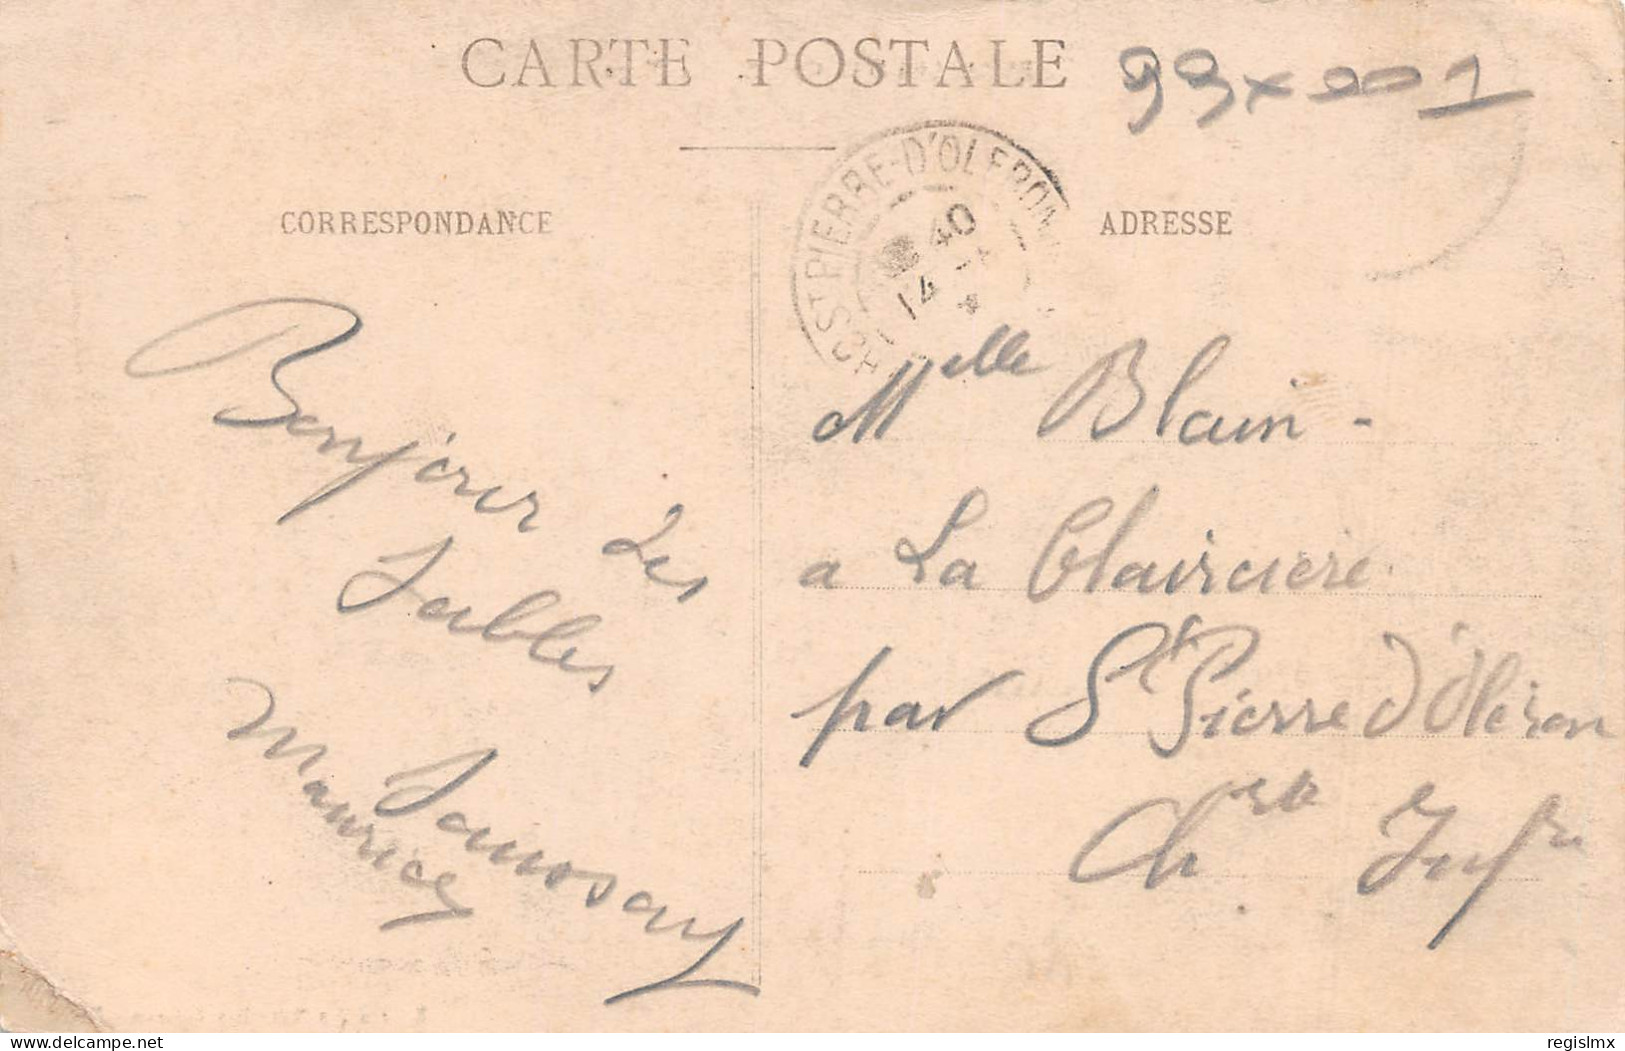 CARTE POSTALE
99x001
CORRESPONDANCE
ADRESSE
ST PIERRE-D'OLERON
40
14
Bonjour des
Sables
Maurice
Melle Blain -
a La Clairciere
par St Pierre d'Oléron
Chte Infre
delcampe.net
regislmx